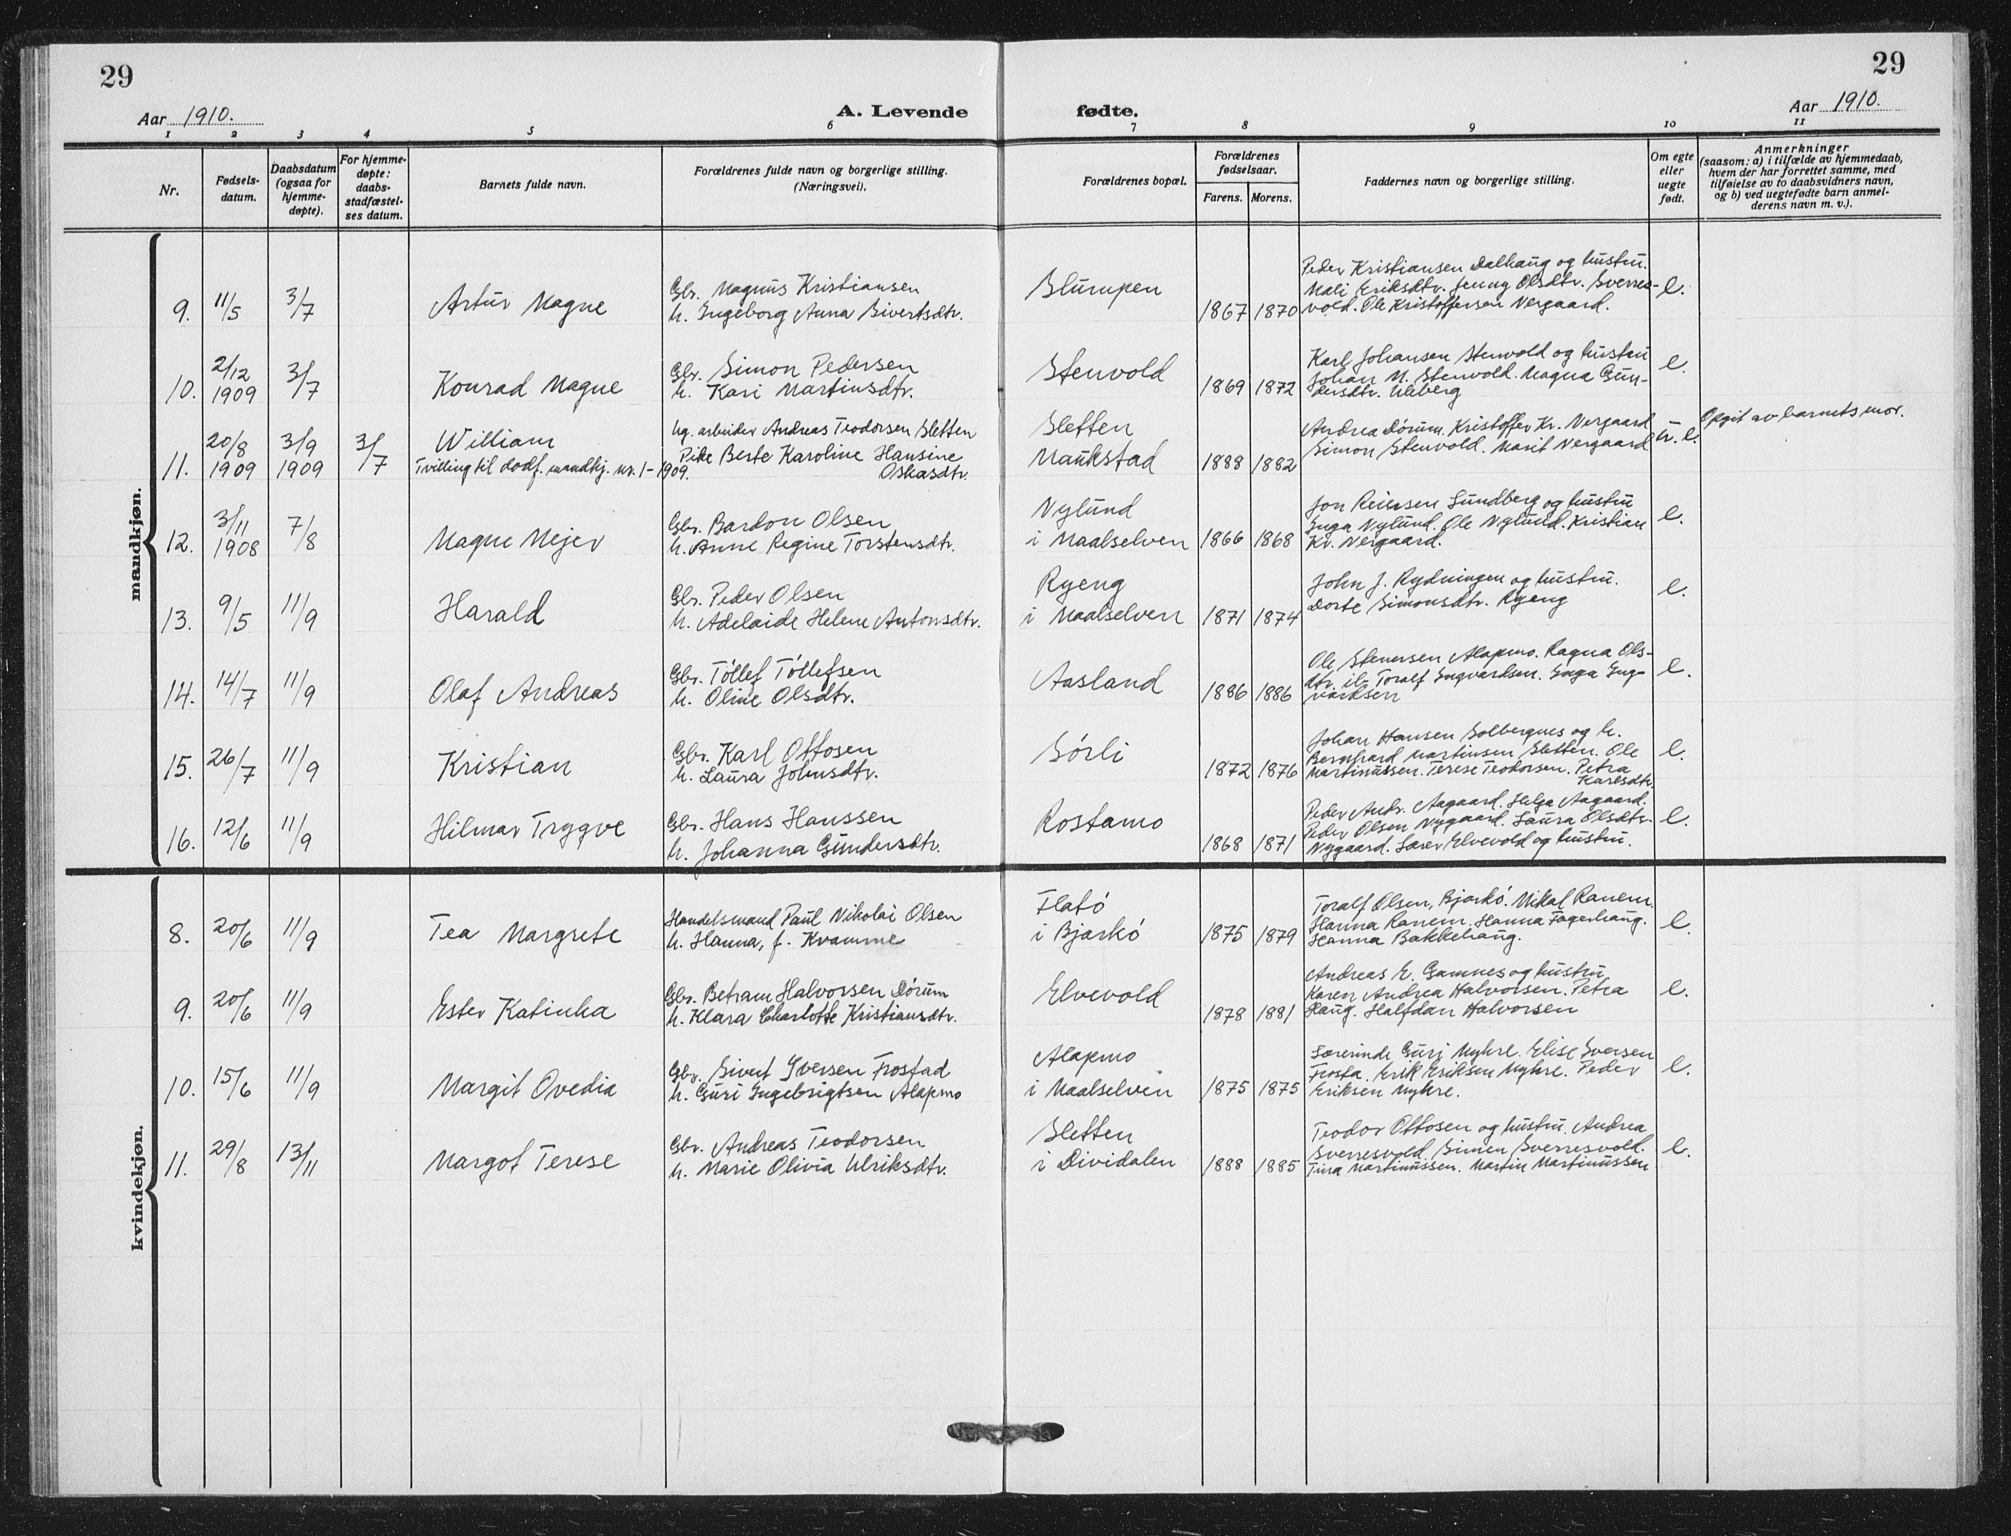 29
29
Aar 1910.
A. Levende fødte.
Aar 1910.
1 2 3 4 5 6 7 8 9 10 11
Nr.
Fødsels-
datum.
Daabsdatum
(ogsaa for
hjemme-
døpte).
For hjemme-
døpte:
daabs-
stadfæstel-
ses datum.
Barnets fulde navn.
Forældrenes fulde navn og borgerlige stilling.
(Næringsvei).
Forældrenes bopæl.
Forældrenes
fødselsaar.
Farens. Morens.
Faddernes navn og borgerlige stilling.
Om egte
eller
uegte
født.
Anmerkninger
(saasom: a) i tilfælde av hjemmedaab,
hvem der har forrettet samme, med
tilføielse av to daabsvidners navn,
og b) ved uegtefødte barn anmel-
derens navn m. v.).
mandkjøn.
9. 11/5 3/7 Artur Magne
Gbr. Magnus Kristiansen
h. Ingeborg Anna Sivertsdtr.
Slumpen
1867 1870
Peder Kristiansen Dalhaug og hustru.
Mali Eriksdtr. Jenny Olsdtr. Sverres-
vold. Ole Kristoffersen Nergaard.
e.
10. 2/12 1909 3/7 Konrad Magne
Gbr. Simon Pedersen
h. Kari Martinsdtr.
Stenvold
1869 1872
Karl Johansen Stenvold og hustru
Johan M. Stenvold. Magna Gun-
dersdtr. Uleberg
e.
11. 20/8 1909 3/9 1909 3/7 William
Tvilling til dødf. mandkj. nr. 1-1909.
Ug. arbeider Andreas Teodorsen Sletten
Pike Berte Karoline Hansine
Oskasdtr.
Sletten
Maukstad
1888 1882
Andrea Dørum. Kristoffer Kr. Nergaard
Simon Stenvold. Marit Nergaard
u. e.
Opgit av barnets mor.
12. 3/11 1908 7/8 Magne Mejer
Gbr. Bardon Olsen
h. Anne Regine Torstensdtr.
Nylund
i Maalselven
1866 1868
Jon Reiersen Sundberg og hustru
Inga Nylund. Ole Nylund. Kristian
Kr. Nergaard.
e.
13. 9/5 11/9 Harald
Gbr. Peder Olsen
h. Adelaide Helene Antonsdtr.
Ryeng
i Maalselven
1871 1874
John J. Rydningen og hustru.
Dorte Simonsdtr. Ryeng
e.
14. 14/7 11/9 Olaf Andreas
Gbr. Tøllef Tøllefsen
h. Oline Olsdtr.
Aasland
1886 1886
Ole Stenersen Alapmo. Ragna Ols-
dtr. Toralf Ingvardsen. Inga Ing-
vardsen
e.
15. 26/7 11/9 Kristian
Gbr. Karl Ottosen
h. Laura Johnsdtr.
Sørli
1872 1876
Johan Hansen Solbergnes og h.
Bernhard Martinsen Sletten. Ole
Martinussen. Terese Teodorsen. Petra
Karlsdtr.
e.
16. 12/6 11/9 Hilmar Trygve
Gbr. Hans Hanssen
h. Johanna Gundersdtr.
Rostamo
1868 1871
Peder Andr. Aagaard. Helga Aagaard.
Peder Olsen Nygaard. Laura Olsdtr.
Nygaard. Lærer Elvevold og hustru.
e.
kvindekjøn.
8. 20/6 11/9 Tea Margrete
Handelsmand Paul Nikolai Olsen
h. Hanna, f. Kvamme
Flatø
i Bjarkø
1875 1879
Toralf Olsen, Bjarkø. Mikal Ranem.
Hanna Ranem. Hanna Fagerhaug.
Hanna Bakkehaug.
e.
9. 20/6 11/9 Ester Katinka
Gbr. Betram Halvorsen Dørum
h. Klara Charlotte Kristiansdtr.
Elvevold
1878 1881
Andreas E. Gamnes og hustru
Karen Andrea Halvorsen. Petra
Haug. Halfdan Halvorsen
e.
10. 15/6 11/9 Margit Ovedia
Gbr. Sivert Iversen Frostad
h. Guri Ingebrigtsen Alapmo
Alapmo
i Maalselven
1875 1875
Lærerinde Guri Myhre. Elise Iversen
Frosta. Erik Eriksen Myhre. Peder
Eriksen Myhre.
e.
11. 29/8 13/11 Margot Terese
Gbr. Andreas Teodorsen
h. Marie Olivia Ulriksdtr.
Sletten
i Dividalen
1888 1885
Teodor Ottosen og hustru. Andrea
Sverresvold. Simen Sverresvold.
Tina Martinussen. Martin Martinussen
e.